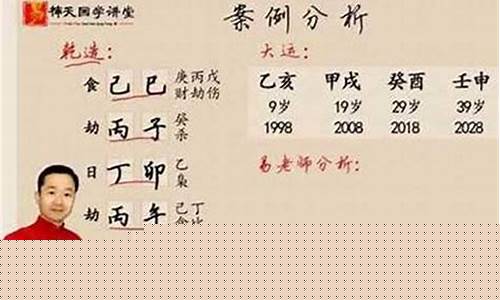 梓天国学讲堂
案例分析
乾造:
食 己巳 庚丙戊
财劫伤
劫 丙子 癸
杀
日 丁卯 乙
枭
劫 丙午 己丁
大运:
乙亥 甲戌 癸酉 壬申
9岁 19岁 29岁 39岁
1998 2008 2018 2028
易老师分析: